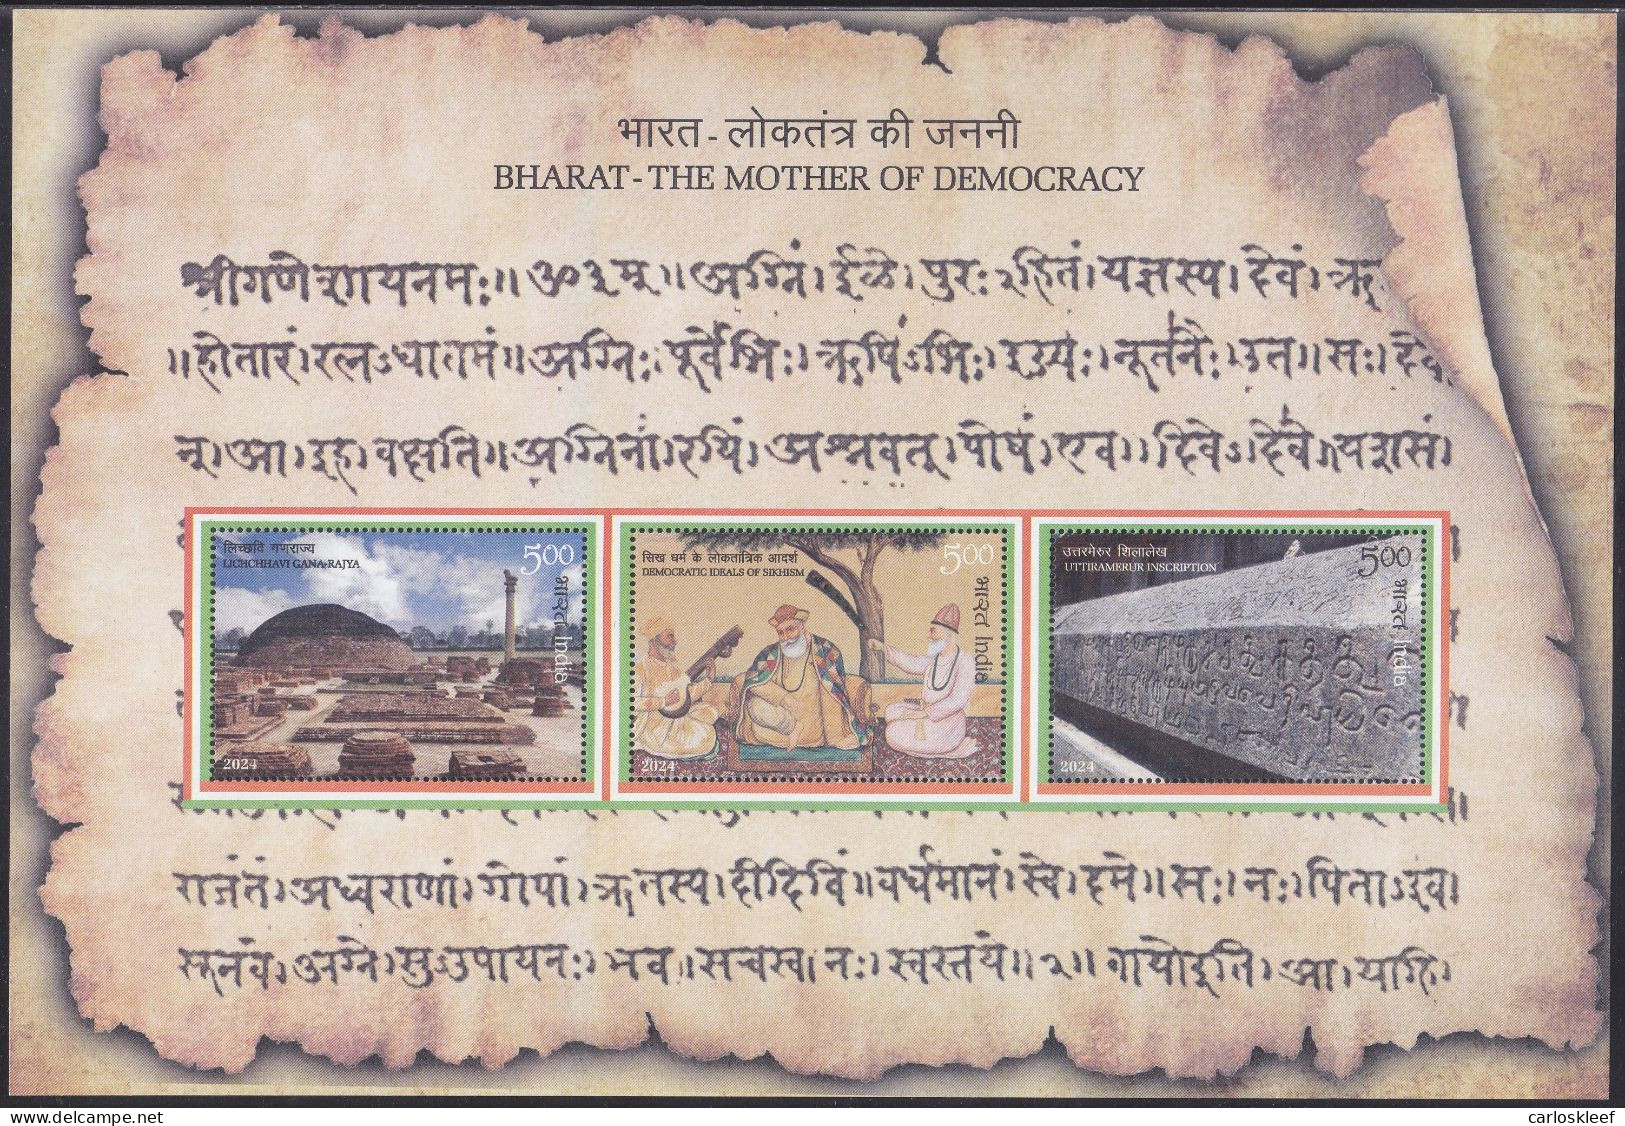 भारत - लोकतंत्र की जननी
BHARAT - THE MOTHER OF DEMOCRACY
अग्निं । ईळे । पुरः २हितं । यज्ञस्य । देवं । ऋ
॥ होतारं । रत्न ऽ धातमं ॥ अग्निः । पूर्वेभिः । ऋषि ऽ भिः । ईड्यः । नूतनैः । उत ॥ सः । देवा
न् । आ । इह । वक्षति ॥ अग्निना । रयिं । अश्नवत् । पोषं । एव । दिवे ऽ दिवे । यशसं ।
लिच्छवि गणराज्य
LICHCHHAVI GANA-RAJYA
500
भारत India
2024
सिख धर्म के लोकतांत्रिक आदर्श
DEMOCRATIC IDEALS OF SIKHISM
500
भारत India
2024
उत्तरमेरुर शिलालेख
UTTIRAMERUR INSCRIPTION
500
भारत India
2024
राजंतं । अध्वराणां । गोपां । ऋतस्य । दीदिविं ॥ वर्धमानं । स्वे । दमे ॥ सः । नः । पिता ऽ इव ।
सूनवे । अग्ने । सु ऽ उपायनः । भव ॥ सचस्व । नः । स्वस्तये ॥ २ ॥ वायो इति । आ । याहि ।
delcampe.net
carloskleef